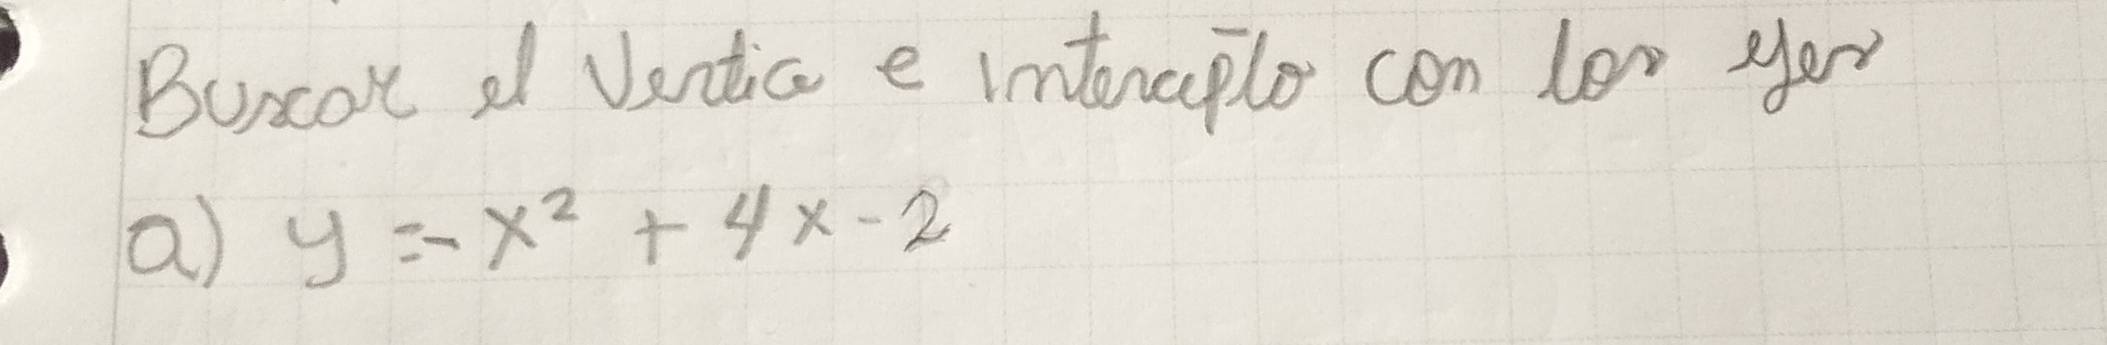 Buscar el Vertice e intercepto con los ejes
a) y = -x² + 4x - 2